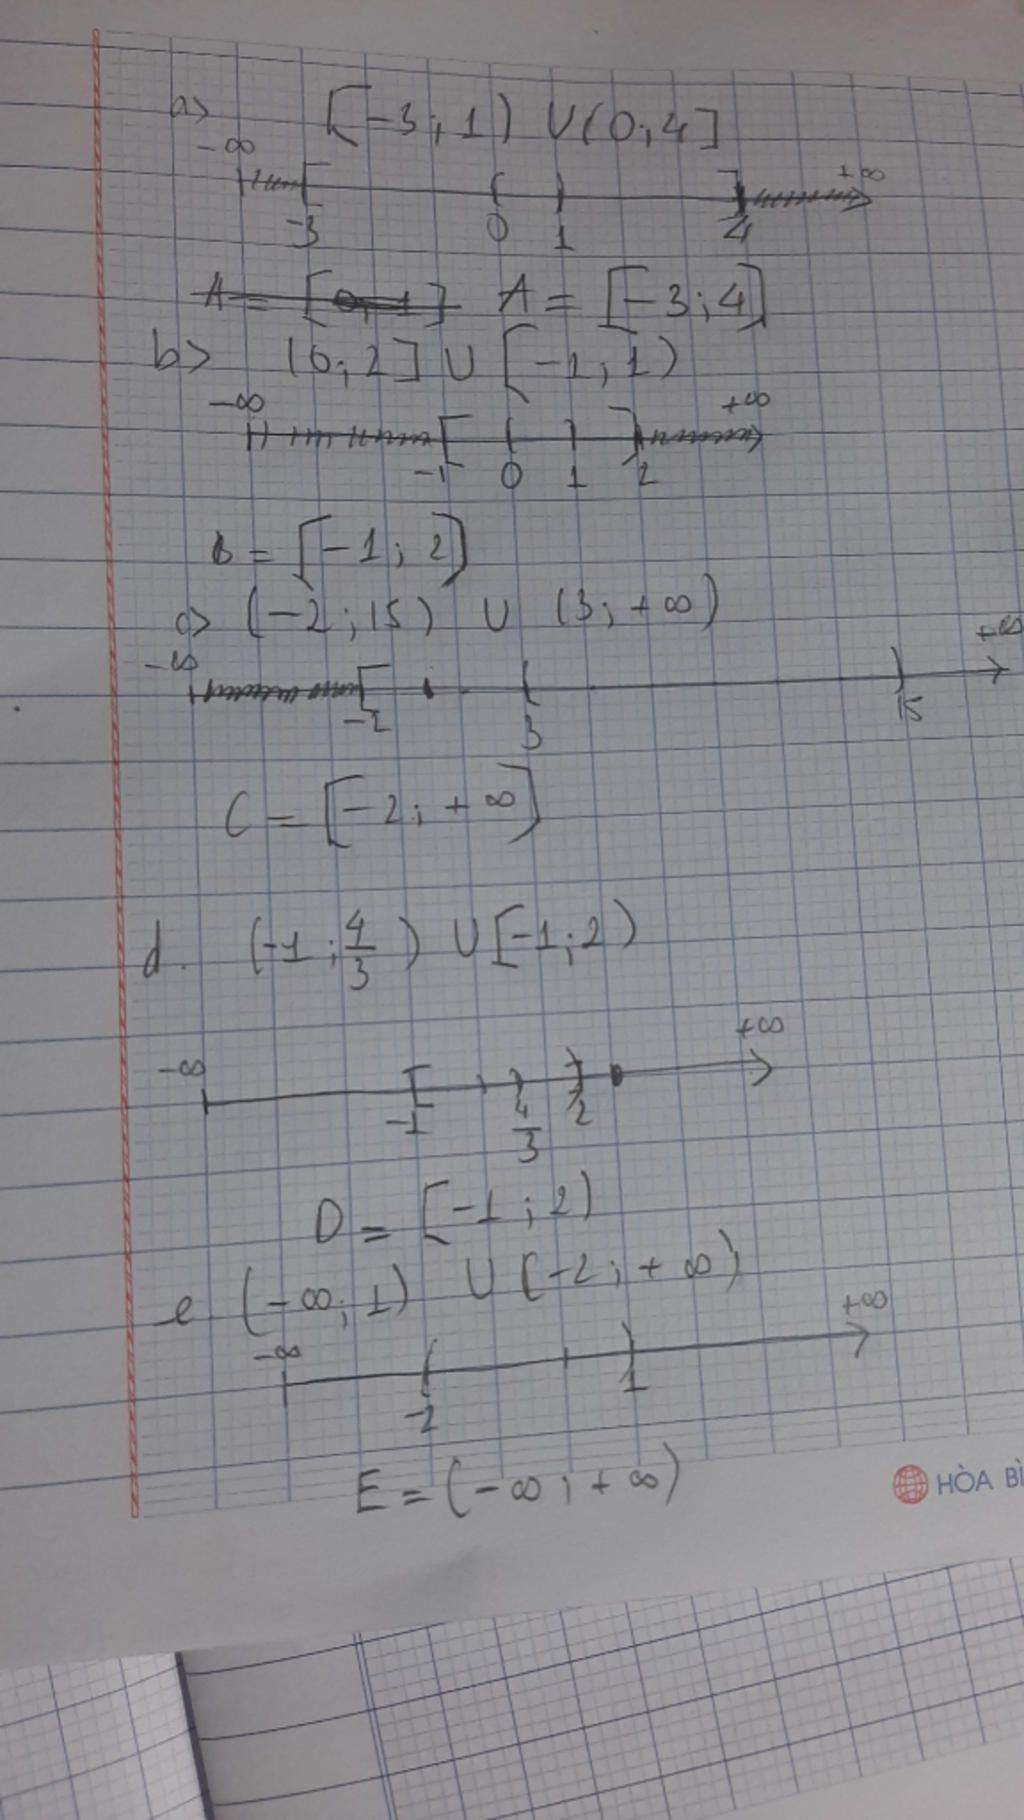 a> [-3 ; 1) ∪ (0 ; 4]
-∞ +∞
-3 0 1 4
A = [-3 ; 4]
b> (0 ; 2] ∪ [-1 ; 1)
-∞ +∞
-1 0 1 2
B = [-1 ; 2]
c> (-2 ; 15) ∪ (3 ; +∞)
-∞ +∞
-2 3 15
C = [-2 ; +∞]
d. (-1 ; 4/3) ∪ [-1 ; 2)
-∞ +∞
-1 4/3 2
D = [-1 ; 2)
e (-∞ ; 1) ∪ (-2 ; +∞)
-∞ +∞
-2 1
E = (-∞ ; +∞)
HÒA BÌ